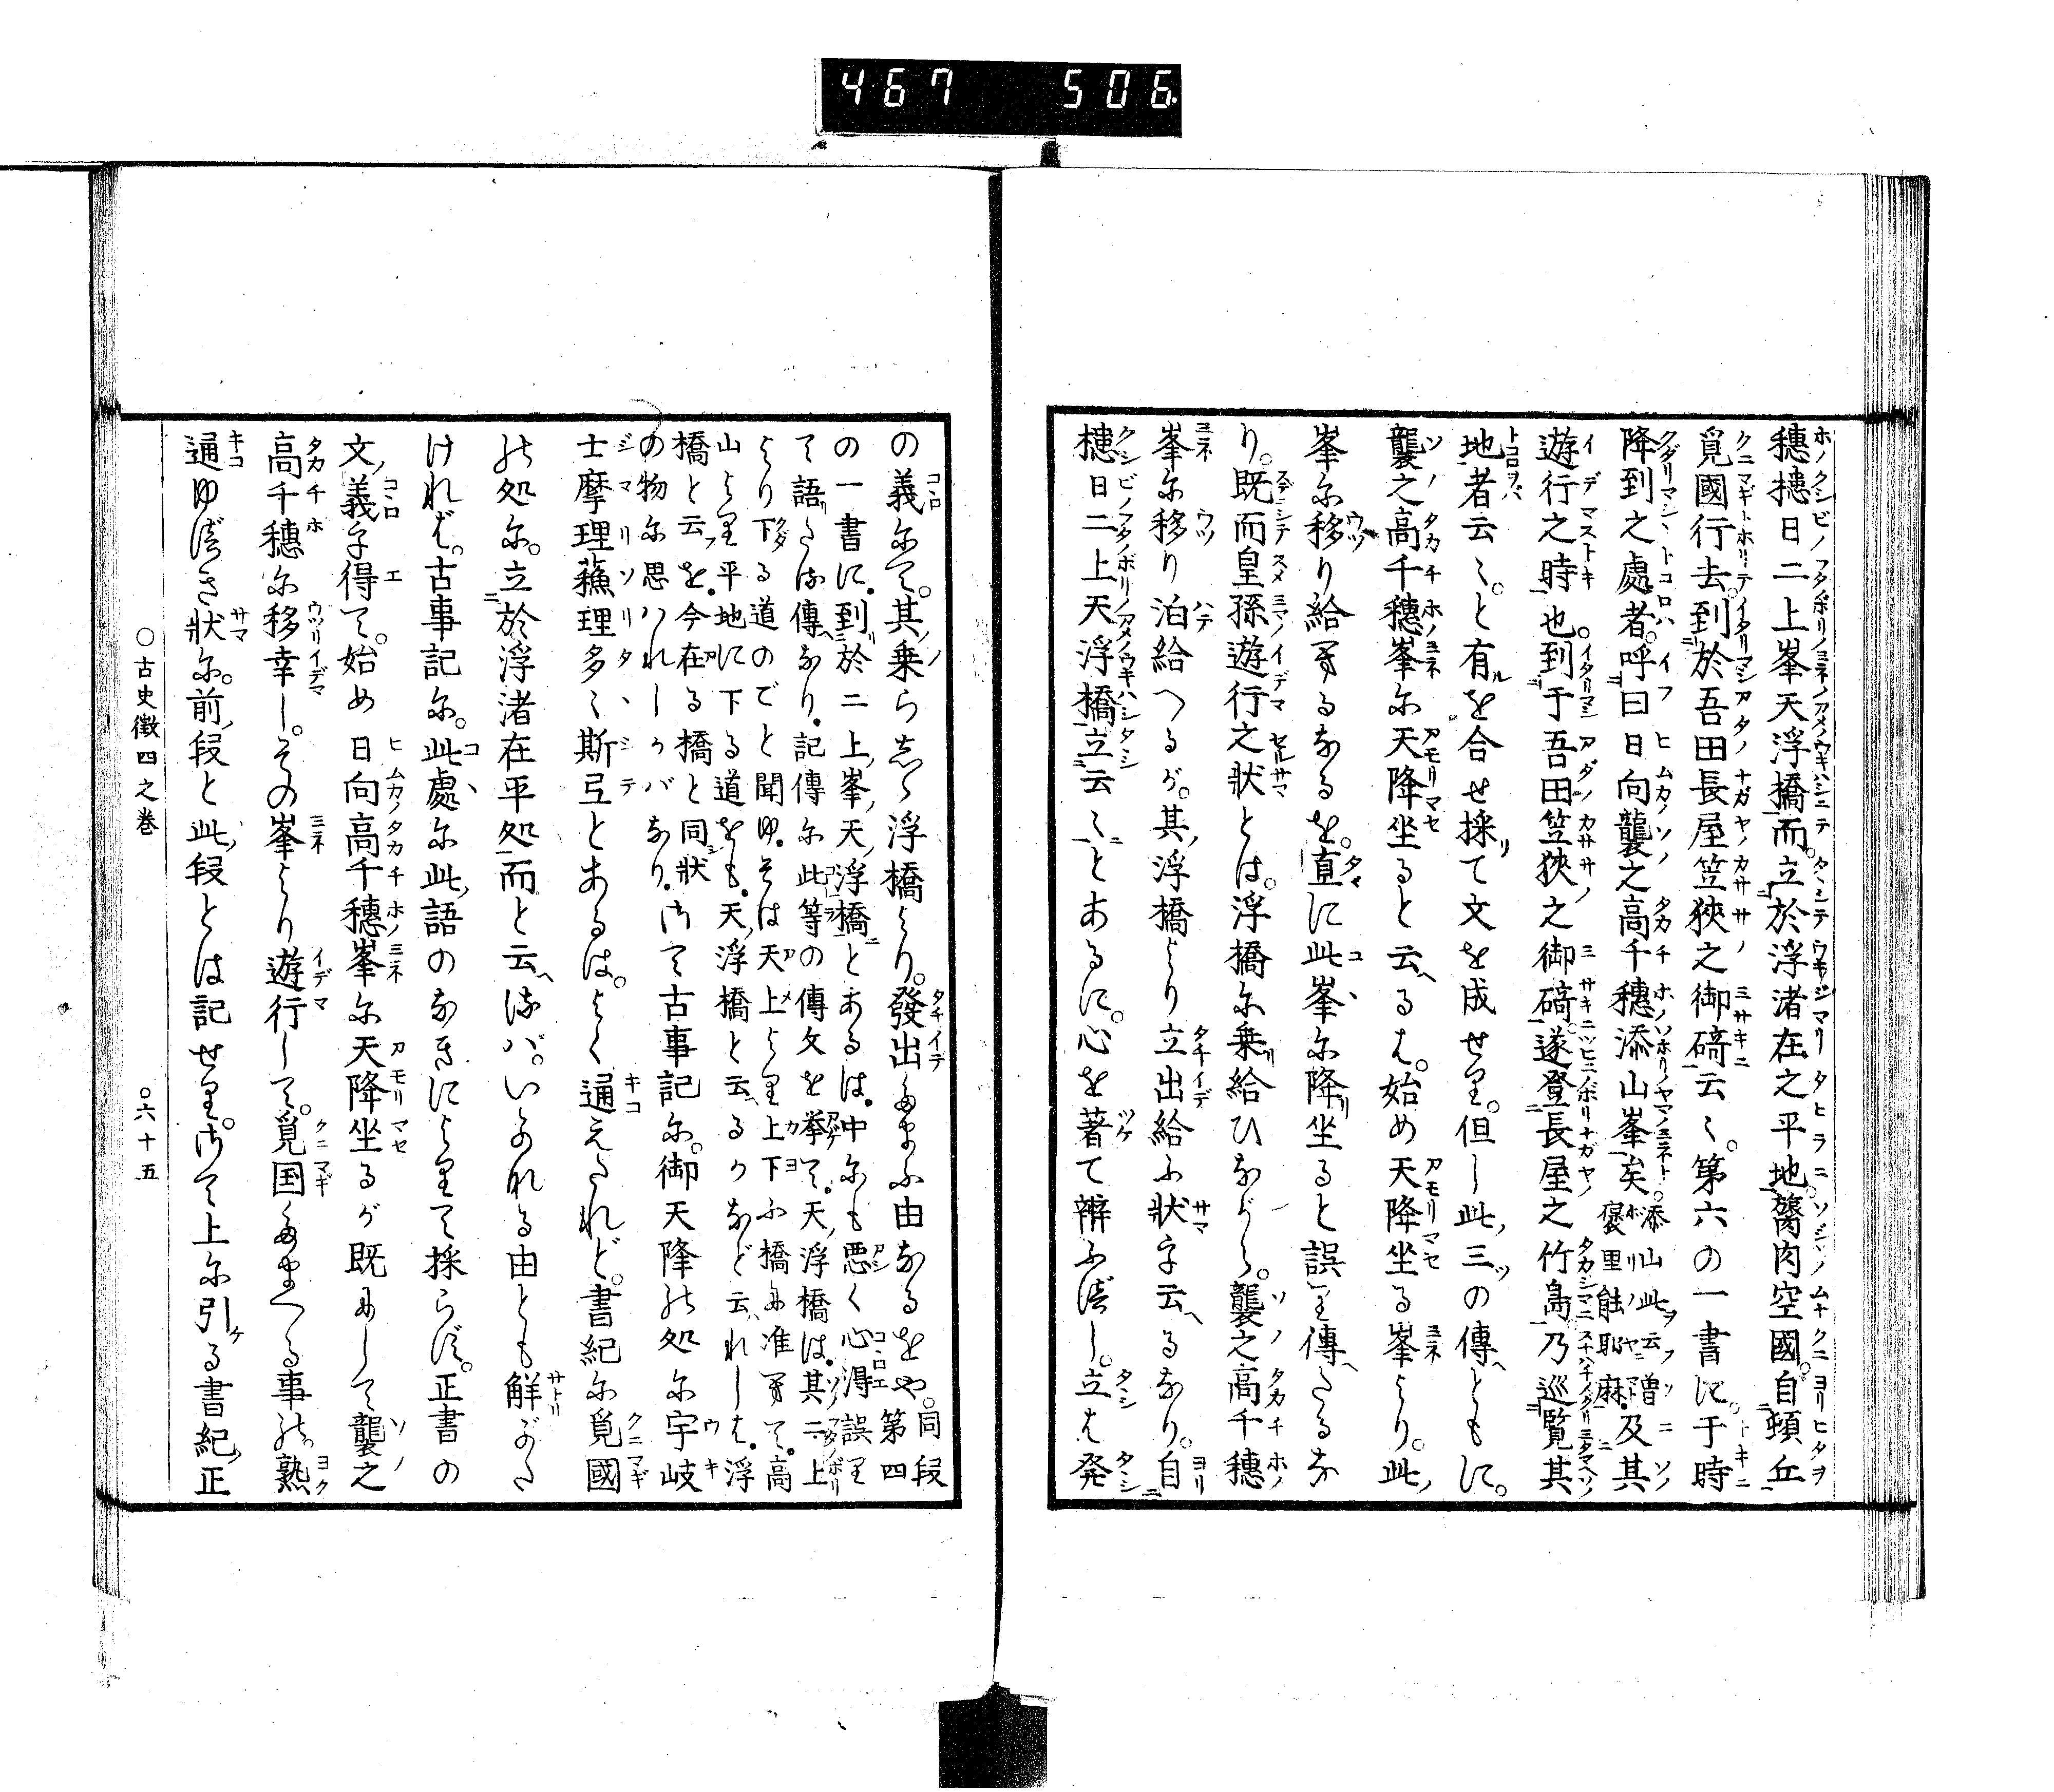 467 506
穗槵日二上峯天浮橋而。立於浮渚在之平地。膂肉空國。自頓丘
覓國行去。到於吾田長屋笠狹之御碕云〻。第六の一書に。于時
降到之處者。呼曰日向襲之高千穗添山峯矣。添山此云曾褒里能耶麻。及其
遊行之時也。到于吾田笠狹之御碕。遂登長屋之竹島。乃巡覽其
地者云〻。と有を合せ採て文を成せり。但し此三の傳ともに。
襲之高千穗峯尓天降坐ると云るは。始め天降坐る峯より。此
峯尓移り給するなるを。直に此峯尓降坐ると誤り傳たるな
り。既而皇孫遊行之狀とは。浮橋尓乗給ひながら。襲之高千穗
峯尓移り泊給へるが。其浮橋より立出給ふ狀を云るなり。自
槵日二上天浮橋立云〻とあるに。心を著て辨ふべし。立は発
の義尓て。其乗らしゝ浮橋より。發出たまふ由なるをや。同段第四
の一書に。到於二上峯天浮橋とあるは。中尓も悪く心得誤り
て語たる傳なり。記傳尓此等の傳文を挙て。天浮橋は。其二上
より下る道のごと聞ゆ。そは天上より上下ふ橋に准すて。高
山より平地に下る道をも。天浮橋と云るかなど云れしは。浮
橋と云を。今在る橋と同狀
の物尓思はれしかばなり。さて古事記尓。御天降の処尓宇岐
士摩理蘓理多〻斯弖とあるは。よく通えたれど。書紀尓覓國
の処尓。立於浮渚在平処而と云るは。いかなる由とも解がた
ければ。古事記尓。此處尓此語のなきによりて採らず。正書の
文義を得て。始め日向高千穗峯尓天降坐るが既にして襲之
高千穗尓移幸し。その峯より遊行して。覓国たまへる事の。熟
通ゆべき狀尓。前段と此段とは記せり。さて上尓引る書紀正
○古史徴四之巻　○六十五